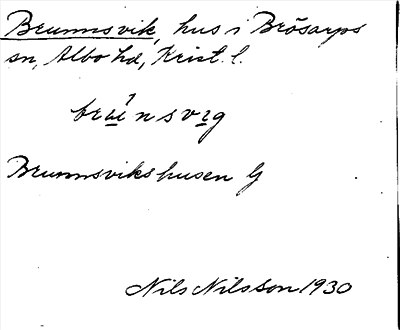 Brunnsvik, hus i Brösarps
sn, Albo hd, Krist. l.
Brunnsvikshusen G
Nils Nilsson 1930